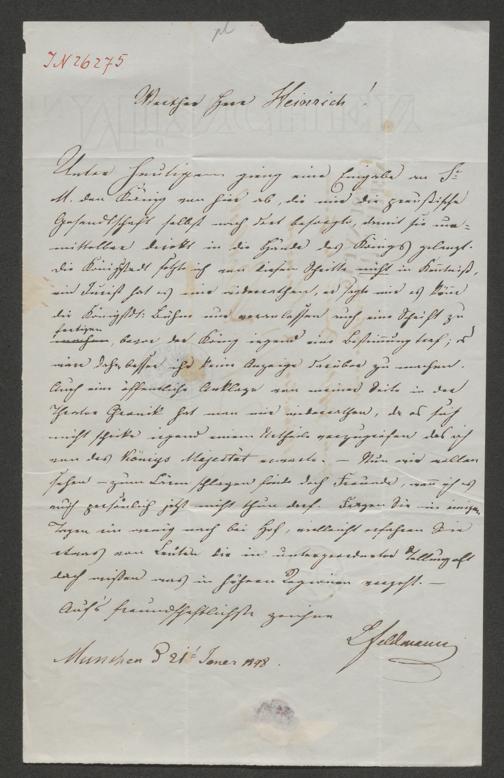 IN 26275
Werther Herr Heinrich!
Unter Heutigem gieng eine Eingabe an Se
M. den König von hier ab, die mir die preußische
Gesandtschaft selbst nach dort besorgte, damit sie un-
mittelbar direkt in die Hände des Königs gelangt.
Die Königstadt setzte ich von diesem Schritte nicht in Kenntniß,
ein Jurist hat es mir widerrathen, er sagte mir es könne
die Königst: Bühne nur veranlassen auch eine Schrift zu
fertigen
machen, bevor der König irgend eine Bestimmung traf, es
wäre daher besser ihr keine Anzeige darüber zu machen.
Auch eine öffentliche Anklage von meiner Seite in der
Theater Chronik hat man mir widerrathen, da es sich
nicht schicke irgend einem Urtheile vorzugreifen das ich
von des Königs Majestät erwarte. – Nun wir wollen
sehen – zum Lärm schlagen finde ich Freunde, wenn ich es
auch persönlich jetzt nicht thun darf. Fragen Sie in einigen
Tagen ein wenig nach bei Hof, vielleicht erfahren Sie
etwas von Leuten die in untergeordneter Stellung oft
doch wissen was in höhern Regionen vorgeht. –
Aufs freundschaftlichste zeichne
L Feldmann
München d 21t Janer 1848.